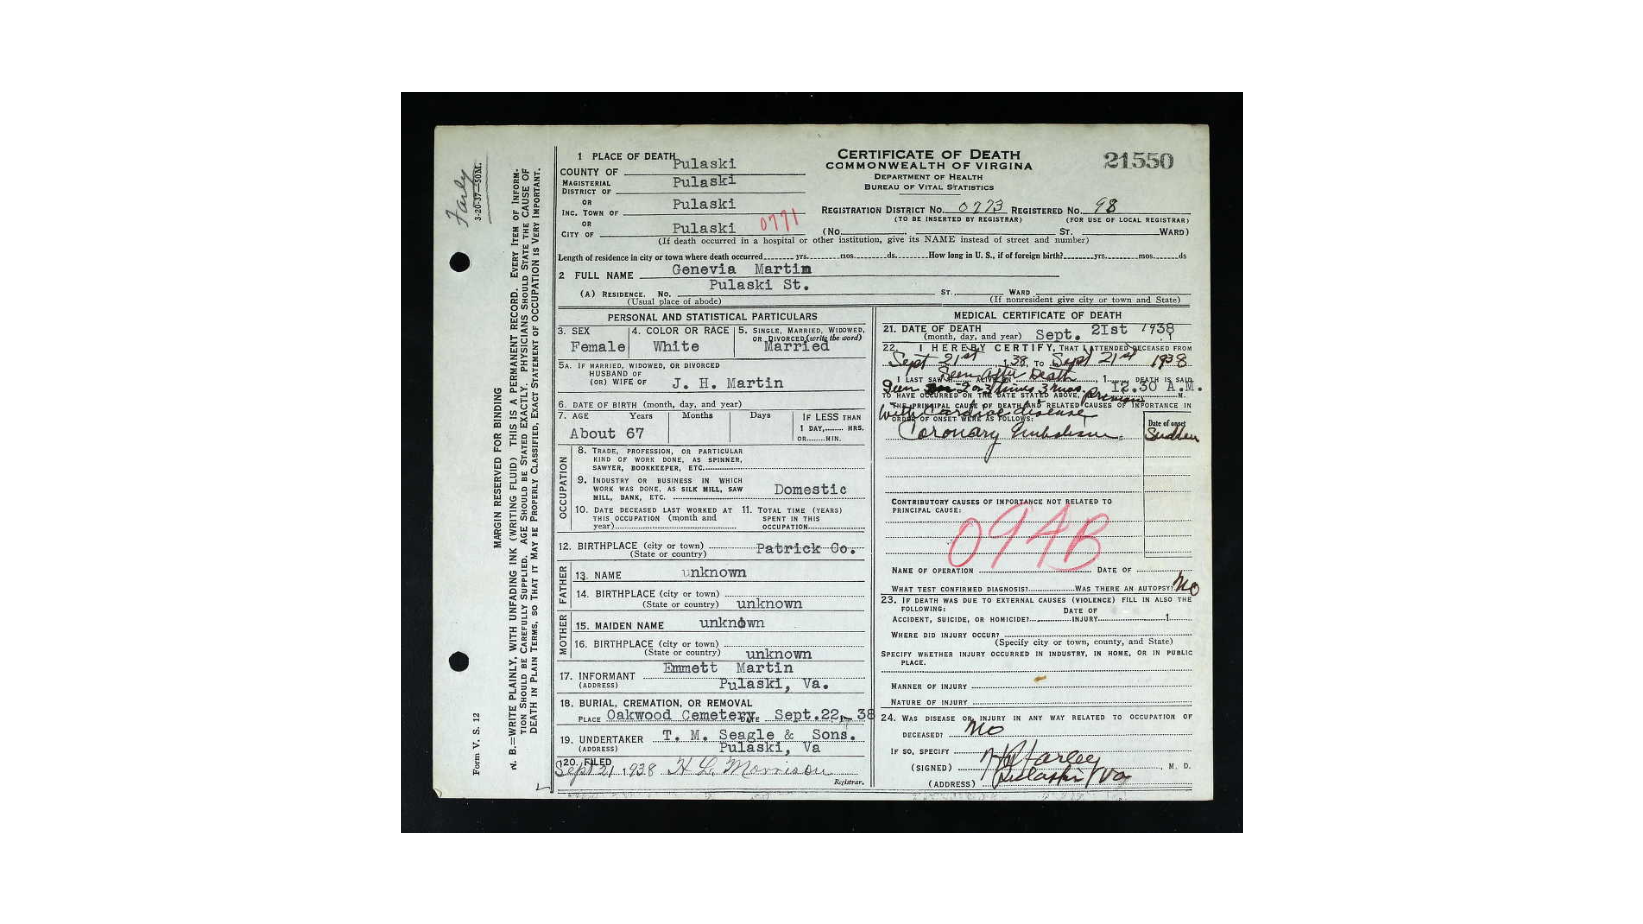 Farly
3-20-37—50M.
MARGIN RESERVED FOR BINDING
N. B.—WRITE PLAINLY, WITH UNFADING INK (WRITING FLUID) THIS IS A PERMANENT RECORD. EVERY ITEM OF INFORM-
TION SHOULD BE CAREFULLY SUPPLIED. AGE SHOULD BE STATED EXACTLY. PHYSICIANS SHOULD STATE THE CAUSE OF
DEATH IN PLAIN TERMS, SO THAT IT MAY BE PROPERLY CLASSIFIED. EXACT STATEMENT OF OCCUPATION IS VERY IMPORTANT.
Form V. S. 12
1 PLACE OF DEATH
COUNTY OF Pulaski
MAGISTERIAL
DISTRICT OF Pulaski
OR
INC. TOWN OF Pulaski
OR
CITY OF Pulaski 0771
CERTIFICATE OF DEATH
COMMONWEALTH OF VIRGINA
DEPARTMENT OF HEALTH
BUREAU OF VITAL STATISTICS
21550
REGISTRATION DISTRICT NO. 0773 REGISTERED NO. 98
(TO BE INSERTED BY REGISTRAR) (FOR USE OF LOCAL REGISTRAR)
(No. ST. WARD)
(If death occurred in a hospital or other institution, give its NAME instead of street and number)
Length of residence in city or town where death occurred yrs. mos. ds. How long in U. S., if of foreign birth? yrs. mos. ds
2 FULL NAME Genevia Martin
(A) RESIDENCE. NO. Pulaski St. ST. WARD
(Usual place of abode) (If nonresident give city or town and State)
PERSONAL AND STATISTICAL PARTICULARS
3. SEX Female
4. COLOR OR RACE White
5. SINGLE, MARRIED, WIDOWED,
OR DIVORCED (write the word)
Married
5A. IF MARRIED, WIDOWED, OR DIVORCED
HUSBAND OF
(OR) WIFE OF J. H. Martin
6. DATE OF BIRTH (month, day, and year)
7. AGE Years Months Days IF LESS THAN
1 DAY, HRS.
OR MIN.
About 67
OCCUPATION
8. TRADE, PROFESSION, OR PARTICULAR
KIND OF WORK DONE, AS SPINNER,
SAWYER, BOOKKEEPER, ETC.
9. INDUSTRY OR BUSINESS IN WHICH
WORK WAS DONE, AS SILK MILL, SAW
MILL, BANK, ETC. Domestic
10. DATE DECEASED LAST WORKED AT
THIS OCCUPATION (month and
year)
11. TOTAL TIME (YEARS)
SPENT IN THIS
OCCUPATION
12. BIRTHPLACE (city or town)
(State or country) Patrick Co.
FATHER
13. NAME unknown
14. BIRTHPLACE (city or town)
(State or country) unknown
MOTHER
15. MAIDEN NAME unknown
16. BIRTHPLACE (city or town)
(State or country) unknown
17. INFORMANT Emmett Martin
(ADDRESS) Pulaski, Va.
18. BURIAL, CREMATION, OR REMOVAL
PLACE Oakwood Cemetery DATE Sept.22, 38
19. UNDERTAKER T. M. Seagle & Sons.
(ADDRESS) Pulaski, Va
20. FILED
Sept 21 1938 H L Morrison
Registrar.
MEDICAL CERTIFICATE OF DEATH
21. DATE OF DEATH
(month, day, and year) Sept. 21st 1938
22. I HEREBY CERTIFY, THAT I ATTENDED DECEASED FROM
Sept 21st, 38, TO Sept 21st, 1938
Seen After Death
I LAST SAW ALIVE ON , DEATH IS SAID
Seen 2 or 3 times 3 mos. previous 12.30 A.M.
TO HAVE OCCURRED ON THE DATE STATED ABOVE, M.
THE PRINCIPAL CAUSE OF DEATH AND RELATED CAUSES OF IMPORTANCE IN
with Cardiac disease
ORDER OF ONSET WERE AS FOLLOWS:
Coronary Embolism
Date of onset
Sudden
CONTRIBUTORY CAUSES OF IMPORTANCE NOT RELATED TO
PRINCIPAL CAUSE:
094B
NAME OF OPERATION DATE OF
WHAT TEST CONFIRMED DIAGNOSIS? WAS THERE AN AUTOPSY? No
23. IF DEATH WAS DUE TO EXTERNAL CAUSES (VIOLENCE) FILL IN ALSO THE
FOLLOWING:
ACCIDENT, SUICIDE, OR HOMICIDE? DATE OF INJURY
WHERE DID INJURY OCCUR?
(Specify city or town, county, and State)
SPECIFY WHETHER INJURY OCCURRED IN INDUSTRY, IN HOME, OR IN PUBLIC
PLACE.
MANNER OF INJURY
NATURE OF INJURY
24. WAS DISEASE OR INJURY IN ANY WAY RELATED TO OCCUPATION OF
DECEASED? No
IF SO, SPECIFY
(SIGNED) Farley, M. D.
(ADDRESS) Pulaski Va